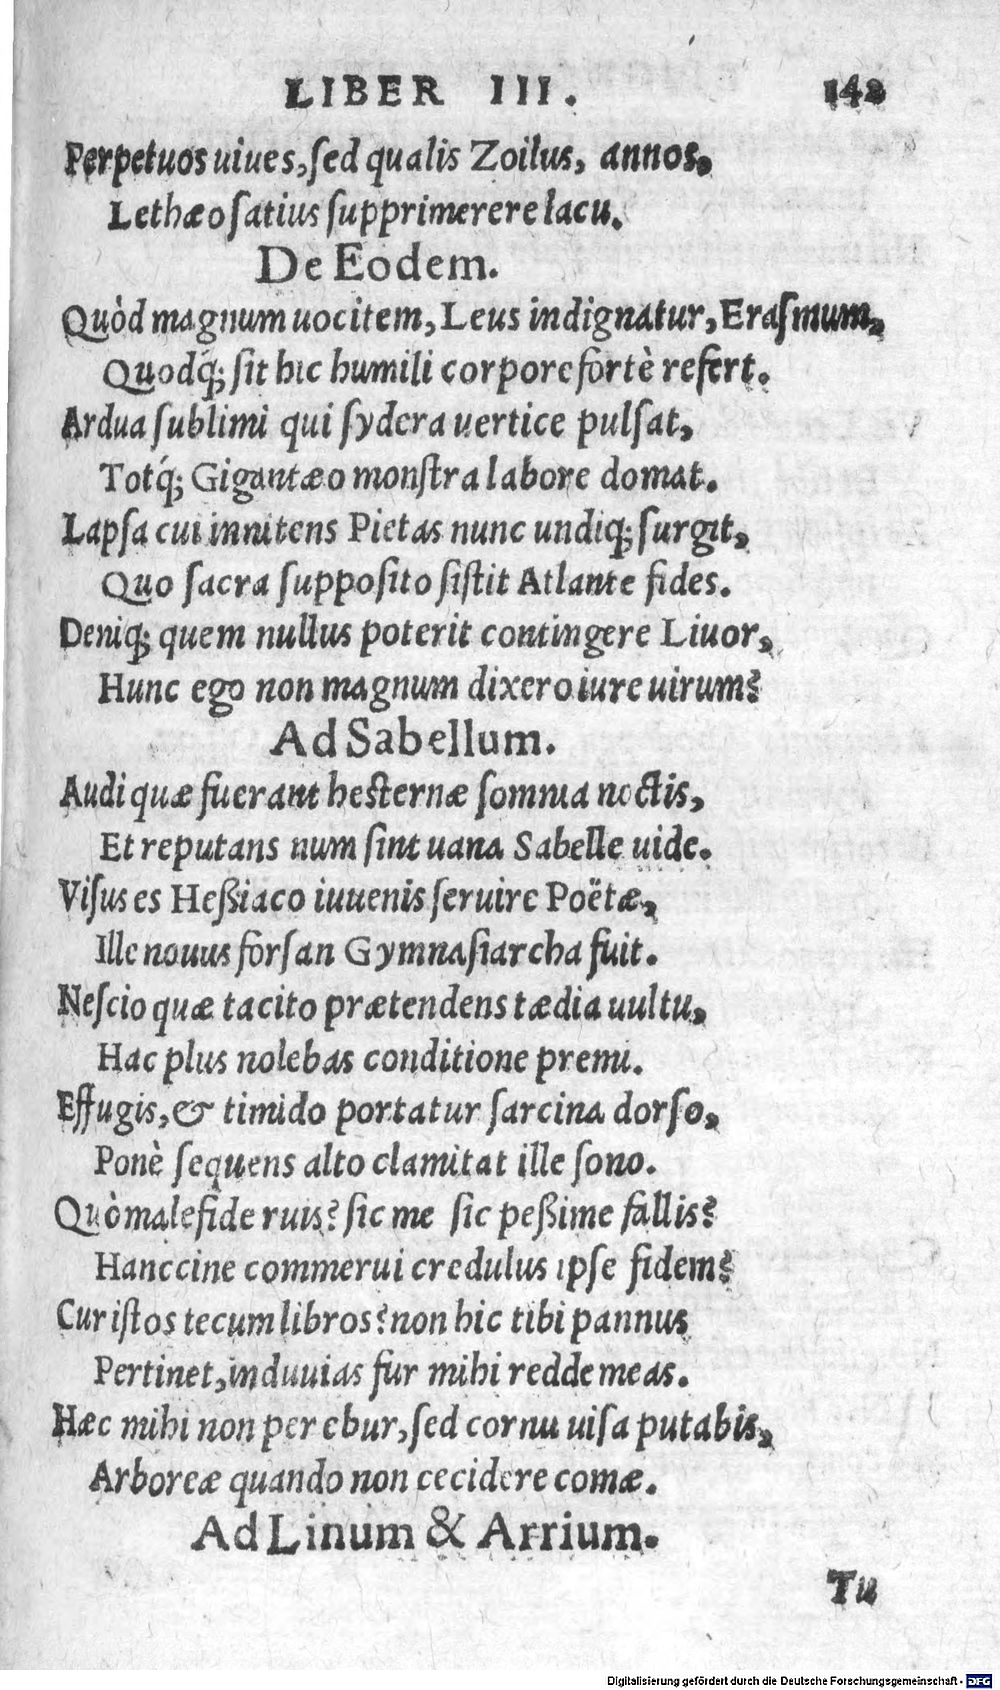 LIBER III. 142
Perpetuos uiues, ſed qualis Zoilus, annos,
Lethæo ſatius ſupprimerere lacu.
De Eodem.
Quòd magnum uocitem, Leus indignatur, Eraſmum,
Quodq́; ſit hic humili corpore fortè refert.
Ardua ſublimi qui ſydera uertice pulſat,
Totq́; Gigantæo monſtra labore domat.
Lapſa cui innitens Pietas nunc undiq; ſurgit,
Quo ſacra ſuppoſito ſiſtit Atlante fides.
Deniq; quem nullus poterit contingere Liuor,
Hunc ego non magnum dixero iure uirum?
Ad Sabellum.
Audi quæ fuerant heſternæ ſomnia noctis,
Et reputans num ſint uana Sabelle uide.
Viſus es Heßiaco iuuenis ſeruire Poëtæ,
Ille nouus forſan Gymnaſiarcha fuit.
Neſcio quæ tacito prætendens tædia uultu,
Hac plus nolebas conditione premi.
Effugis, & timido portatur ſarcina dorſo,
Ponè ſequens alto clamitat ille ſono.
Quò malefide ruis? ſic me ſic peßime fallis?
Hanccine commerui credulus ipſe fidem?
Cur iſtos tecum libros? non hic tibi pannus
Pertinet, induuias fur mihi redde meas.
Hæc mihi non per ebur, ſed cornu uiſa putabis,
Arboreæ quando non cecidere comæ.
Ad Linum & Arrium.
Tu
Digitalisierung gefördert durch die Deutsche Forschungsgemeinschaft - DFG